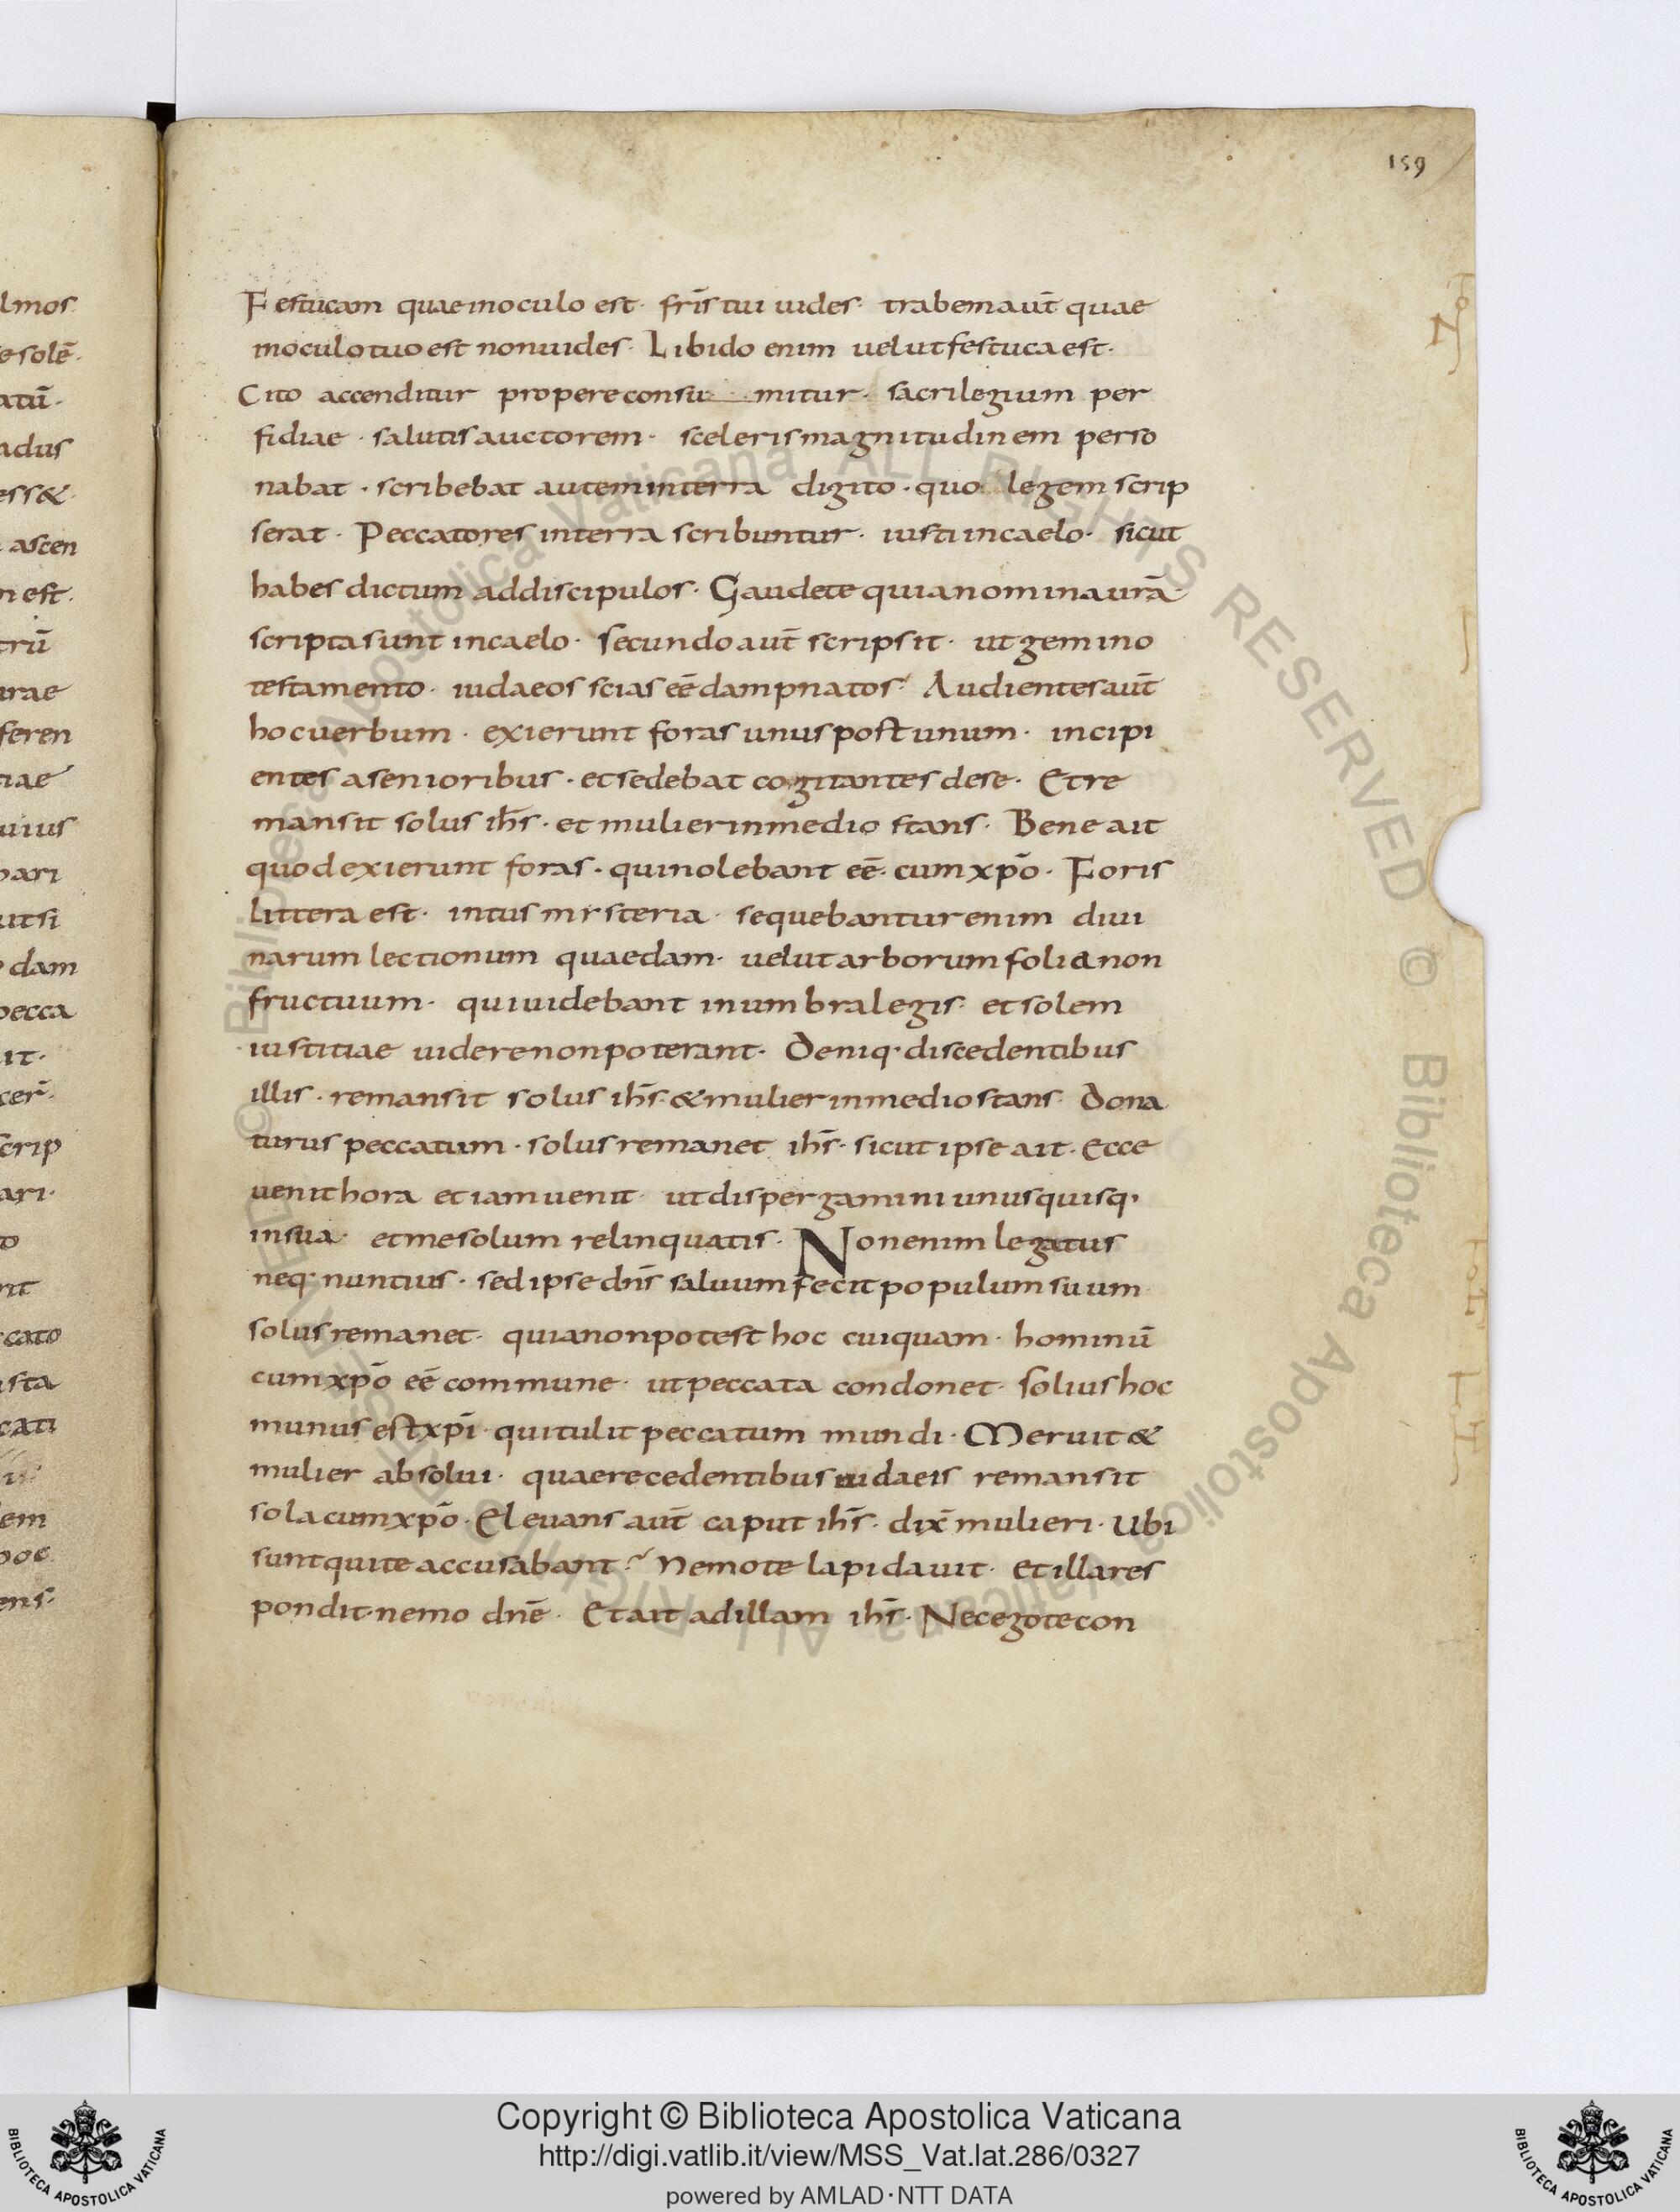 lmos
e solē
atū
adus
ess&
ascen
n est
trū
urae
feren
tiae
uius
pari
utsi
dam
pecca
it
cer̄
scrip
ari
to
nt
cato
ista
cati
lem
poe
ens
159
Festucam quae inoculo est · fr̄is tui uides · trabem aut̄ quae
inoculo tuo est non uides · Libido enim uelut festuca est ·
Cito accenditur propere consumitur · sacrilegium per
fidiae · salutis auctorem · sceleris magnitudinem perso
nabat · scribebat autem interra digito · quo legem scrip
serat · Peccatores interra scribuntur · iusti incaelo · sicut
habes dictum addiscipulos · Gaudete quia nomina ur̄a
scripta sunt incaelo · secundo aut̄ scripsit · ut gemino
testamento · iudaeos scias eē dampnatos · Audientes aut̄
hoc uerbum · exierunt foras unus post unum · incipi
entes asenioribus · et sedebat cogitantes dese · Et re
mansit solus ih̄s · et mulier inmedio stans · Bene ait
quod exierunt foras · qui nolebant eē cum xp̄o · Foris
littera est · intus mysteria · sequebantur enim diui
narum lectionum quaedam · uelut arborum folia non
fructuum · qui uidebant inumbra legis · et solem
iustitiae uidere non poterant · Deniq· discedentibus
illis · remansit solus ih̄s · & mulier inmedio stans · Dona
turus peccatum · solus remanet ih̄s · sicut ipse ait · Ecce
uenit hora et iam uenit · ut dispergamini unusquisq·
insua · et me solum relinquatis · Non enim legatus
neq· nuntius · sed ipse dn̄s saluum fecit populum suum
solus remanet · quia non potest hoc cuiquam · hominū
cum xp̄o eē commune · ut peccata condonet · solius hoc
munus est xp̄i · qui tulit peccatum mundi · Meruit &
mulier absolui · quae recedentibus iudaeis remansit
sola cum xp̄o · Eleuans aut̄ caput ih̄s · dix̄ mulieri · Ubi
sunt qui te accusabant? Nemo te lapidauit · et illa res
pondit · nemo dn̄e · Et ait ad illam ih̄s · Nec ego te con
© Biblioteca Apostolica Vaticana ALL RIGHTS RESERVED © Biblioteca Apostolica Vaticana ALL RIGHTS RESERVED
Copyright © Biblioteca Apostolica Vaticana
http://digi.vatlib.it/view/MSS_Vat.lat.286/0327
powered by AMLAD·NTT DATA
BIBLIOTECA APOSTOLICA VATICANA
BIBLIOTECA APOSTOLICA VATICANA